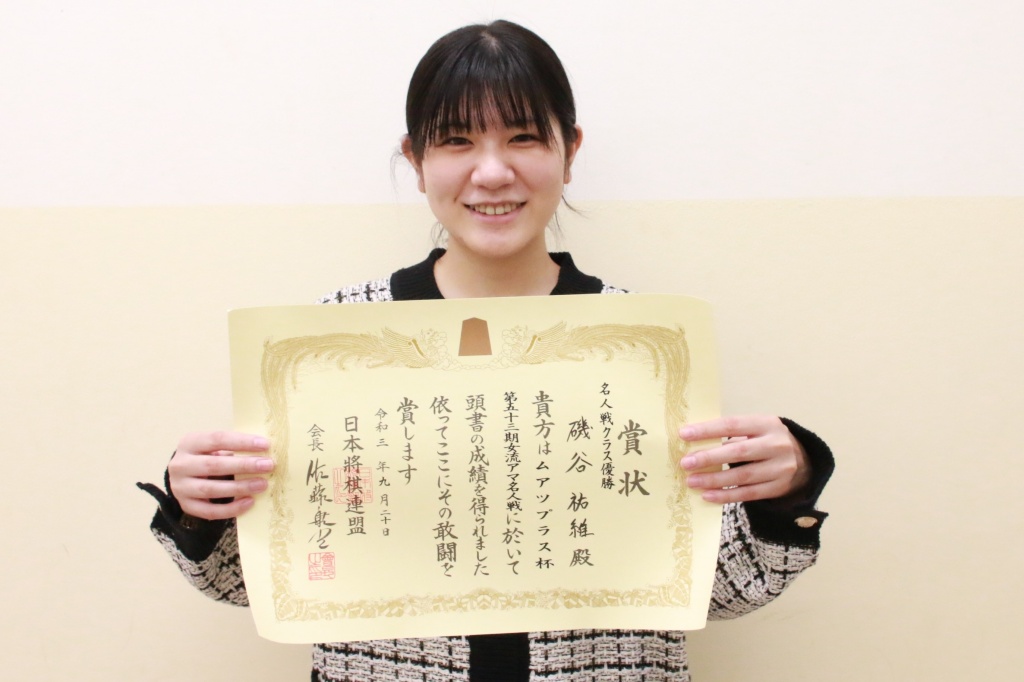 賞状
名人戦クラス優勝
磯谷祐維殿
貴方はムアツプラス杯
第五十三期女流アマ名人戦に於いて
頭書の成績を得られました
依ってここにその敢闘を
賞します
令和三年九月二十日
日本將棋連盟
会長 佐藤康光